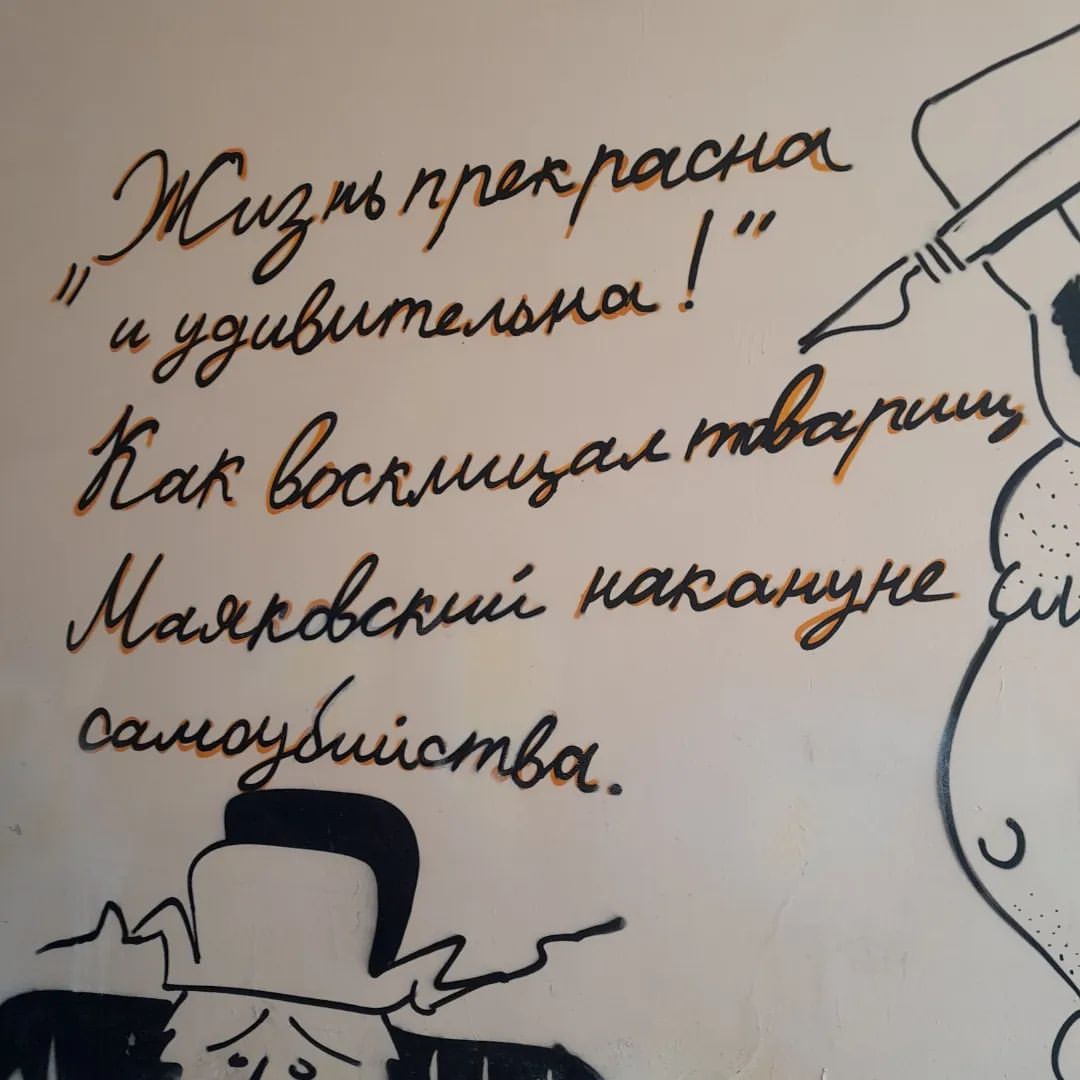 „Жизнь прекрасна
и удивительна!"
Как восклицал товарищ
Маяковский накануне
самоубийства.